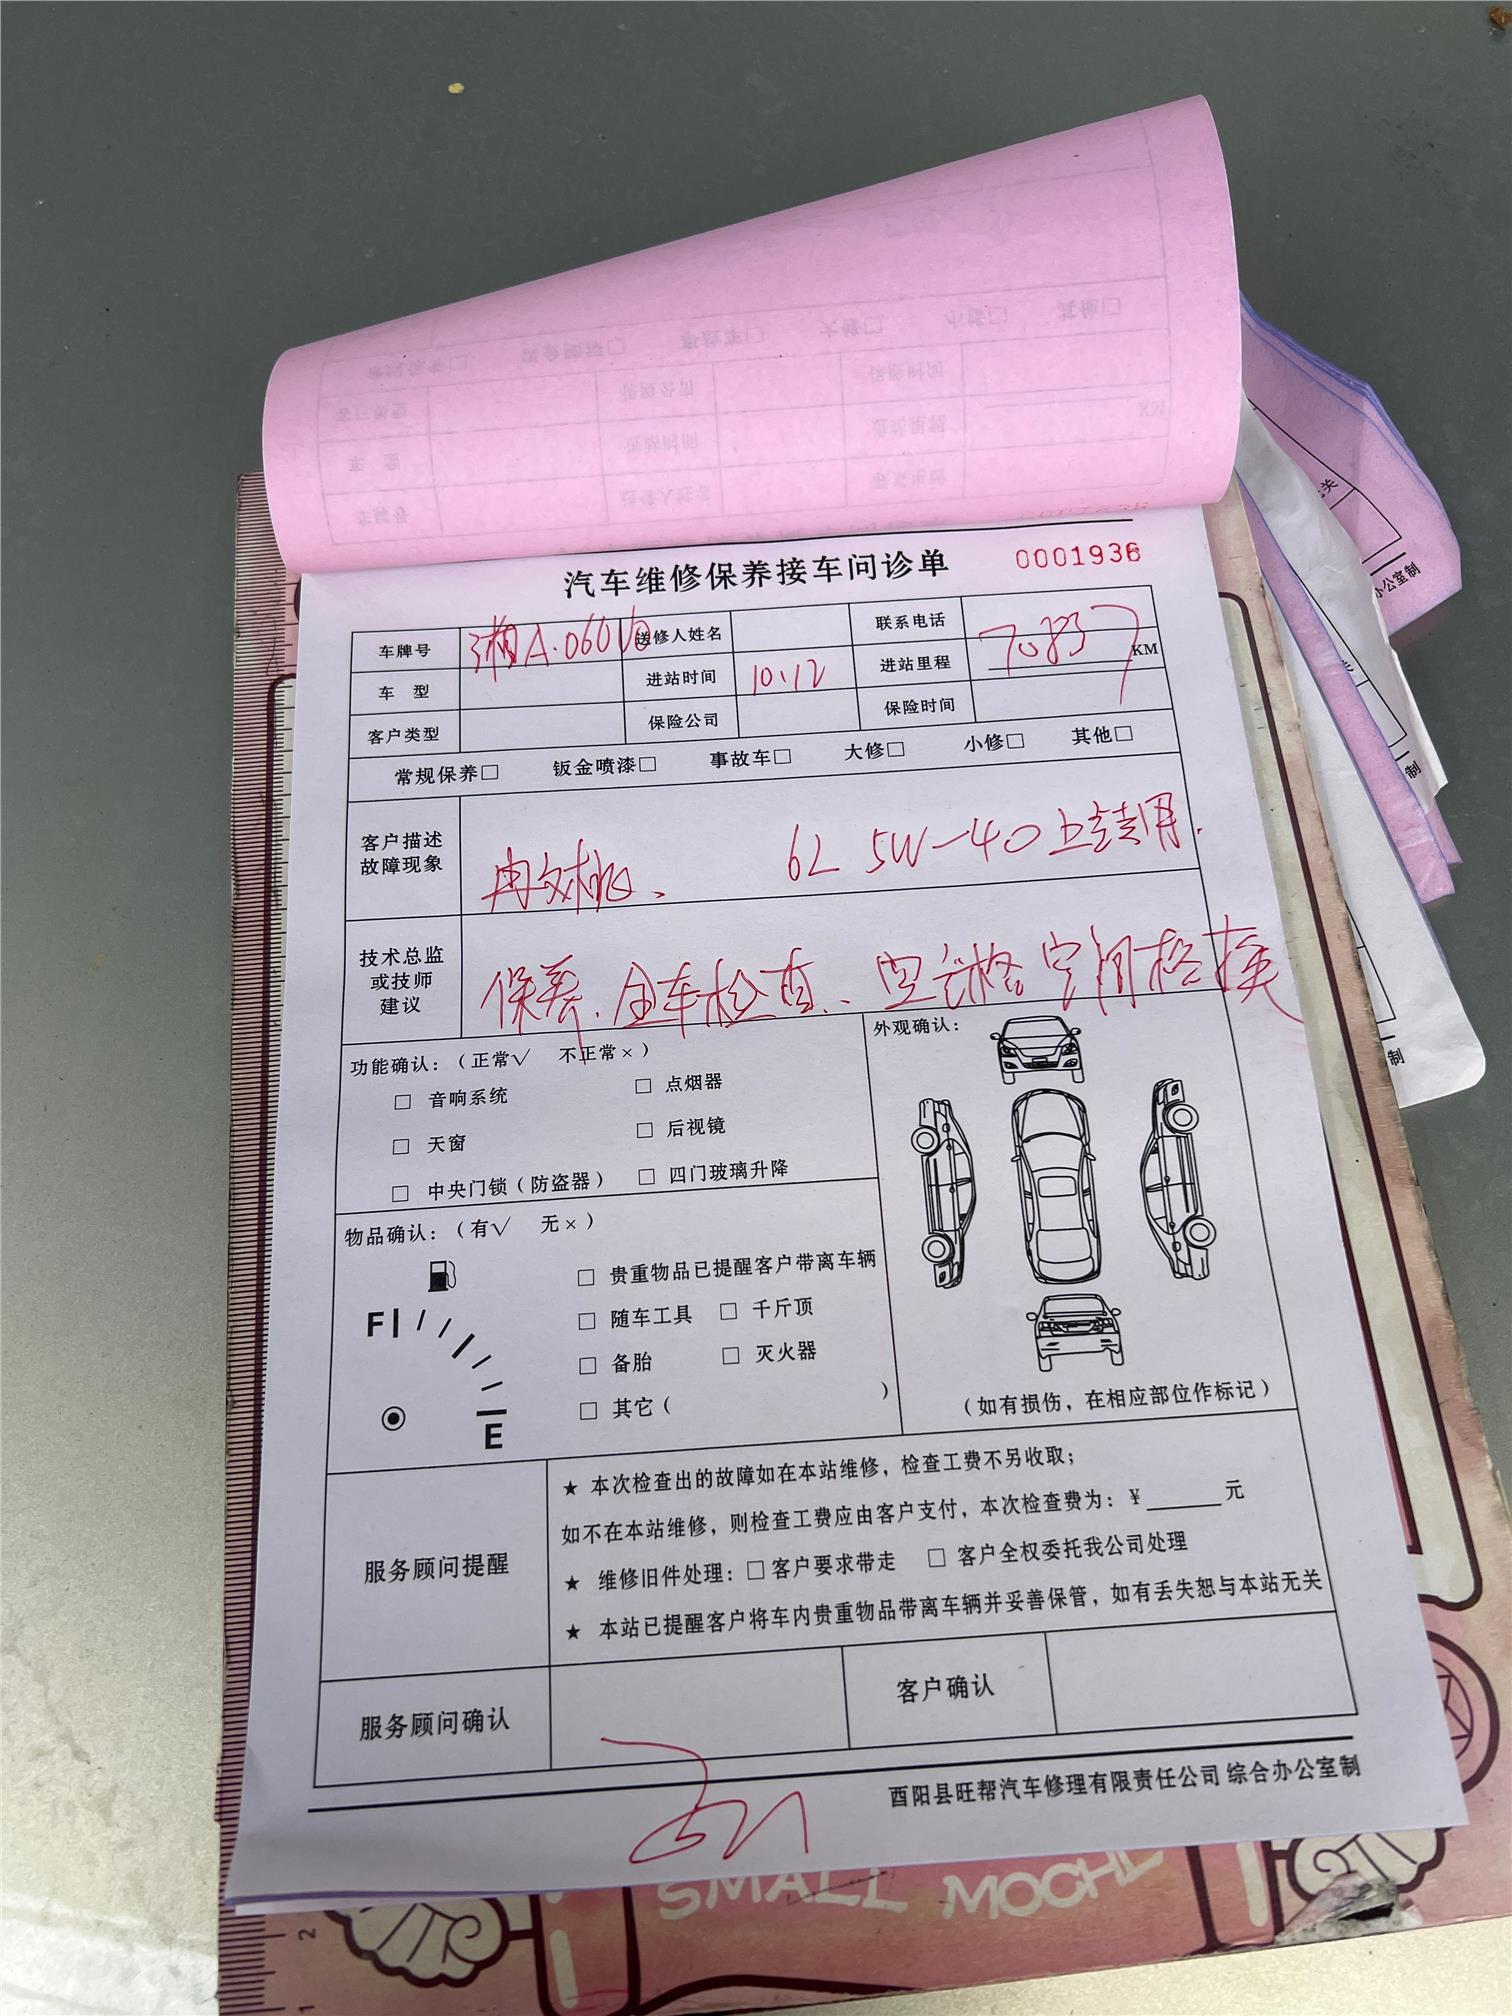 汽车维修保养接车问诊单 0001936
车牌号 湘A·060 送修人姓名 联系电话
车 型 进站时间 10.12 进站里程 70837 KM
客户类型 保险公司 保险时间
常规保养□ 钣金喷漆□ 事故车□ 大修□ 小修□ 其他□
客户描述
故障现象
6L 5W-40
技术总监
或技师
建议
保养、全车检查、空气格 空调格换
功能确认：（正常√ 不正常×）
□ 音响系统 □ 点烟器
□ 天窗 □ 后视镜
□ 中央门锁（防盗器） □ 四门玻璃升降
外观确认：
（如有损伤，在相应部位作标记）
物品确认：（有√ 无×）
F
E
□ 贵重物品已提醒客户带离车辆
□ 随车工具 □ 千斤顶
□ 备胎 □ 灭火器
□ 其它（ ）
服务顾问提醒
★ 本次检查出的故障如在本站维修，检查工费不另收取；
如不在本站维修，则检查工费应由客户支付，本次检查费为：¥______元
★ 维修旧件处理：□客户要求带走 □ 客户全权委托我公司处理
★ 本站已提醒客户将车内贵重物品带离车辆并妥善保管，如有丢失恕与本站无关
服务顾问确认 客户确认
酉阳县旺帮汽车修理有限责任公司 综合办公室制
SMALL MOCHI